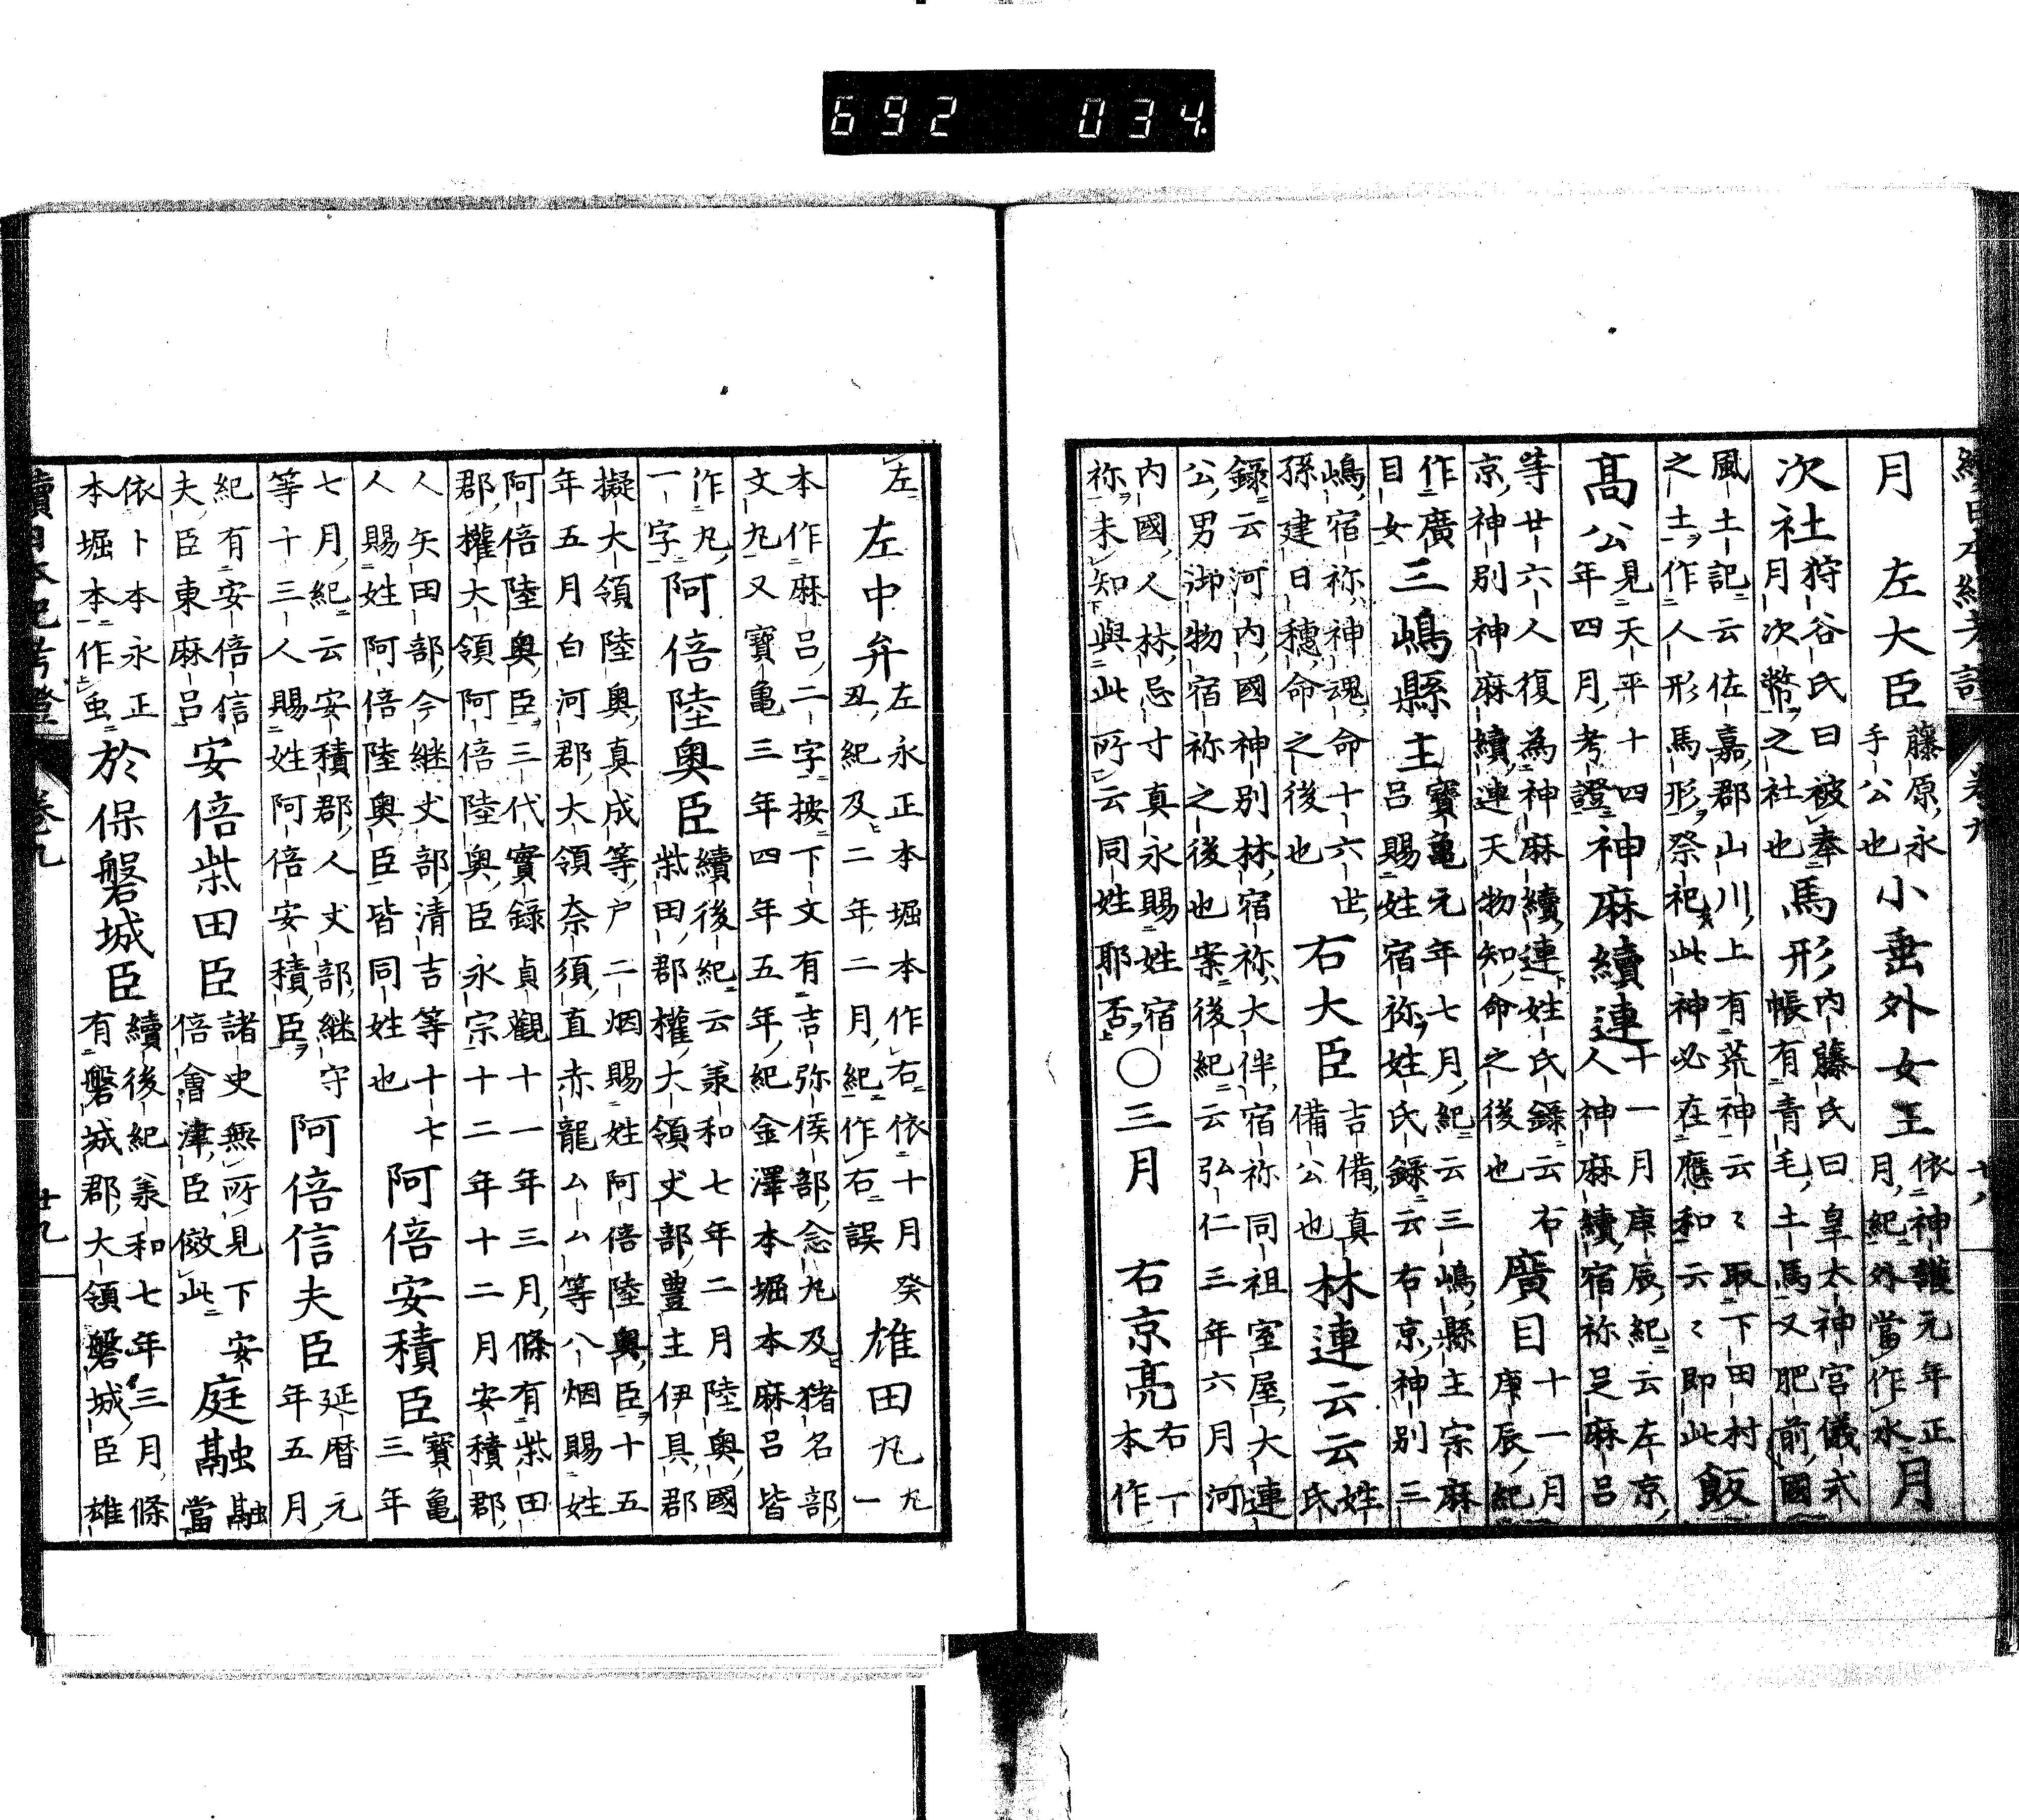 續日本紀考證 卷九 廿八
月 左大臣 藤原永手公也 小垂外女王 依神護元年正月紀外當作水 月
次社 狩谷氏曰被奉月次幣之社也 馬形 内藤氏曰皇太神宮儀式帳有青毛土馬又肥前國
風土記云佐嘉郡山川上有荒神云〻取下田村之土作人形馬形祭祀此神必在應和云〻即此 飯
高公 見天平十四年四月考證 神麻續連 十一月庚辰紀云左京人神麻續宿祢足麻呂
等廿六人復為神麻續連姓氏録云右京神別神麻續連天物知命之後也 廣目 十一月庚辰紀
作廣目女 三嶋縣主 寶亀元年七月紀云三嶋縣主宗麻呂賜姓宿祢姓氏録云右京神別三
嶋宿祢神魂命十六世孫建日穗命之後也 右大臣 吉備真備公也 林連云云 姓氏
録云河内國神別林宿祢大伴宿祢同祖室屋大連公男御物宿祢之後也案後紀云弘仁三年六月河
内國人林忌寸真永賜姓宿祢未知與此所云同姓耶否 〇三月 右京亮 右一本作
左 左中弁 左永正本堀本作右依十月癸丑紀及二年二月紀作右誤 雄田丸 丸一
本作麻呂二字按下文有吉弥侯部念丸及猪名部文丸又寶亀三年四年五年紀金澤本堀本麻呂皆
作丸一字 阿倍陸奥臣 續後紀云羕和七年二月陸奥國柴田郡權大領丈部豊主伊具郡
擬大領陸奥真成等户二烟賜姓阿倍陸奥臣十五年五月白河郡大領奈須直赤龍ムム等八烟賜姓
阿倍陸奥臣三代實録貞觀十一年三月條有柴田郡權大領阿倍陸奥臣永宗十二年十二月安積郡
人矢田部今継丈部清吉等十七人賜姓阿倍陸奥臣皆同姓也 阿倍安積臣 寶亀三年
七月紀云安積郡人丈部継守等十三人賜姓阿倍安積臣 阿倍信夫臣 延暦元年五月
紀有安倍信夫臣東麻呂 安倍柴田臣 諸史無所見下安倍會津臣傚此 庭融 融當
依卜本永正本堀本作䖝 於保磐城臣 續後紀羕和七年三月條有磐城郡大領磐城臣雄
續日本紀考證 卷九 廿九
692 034